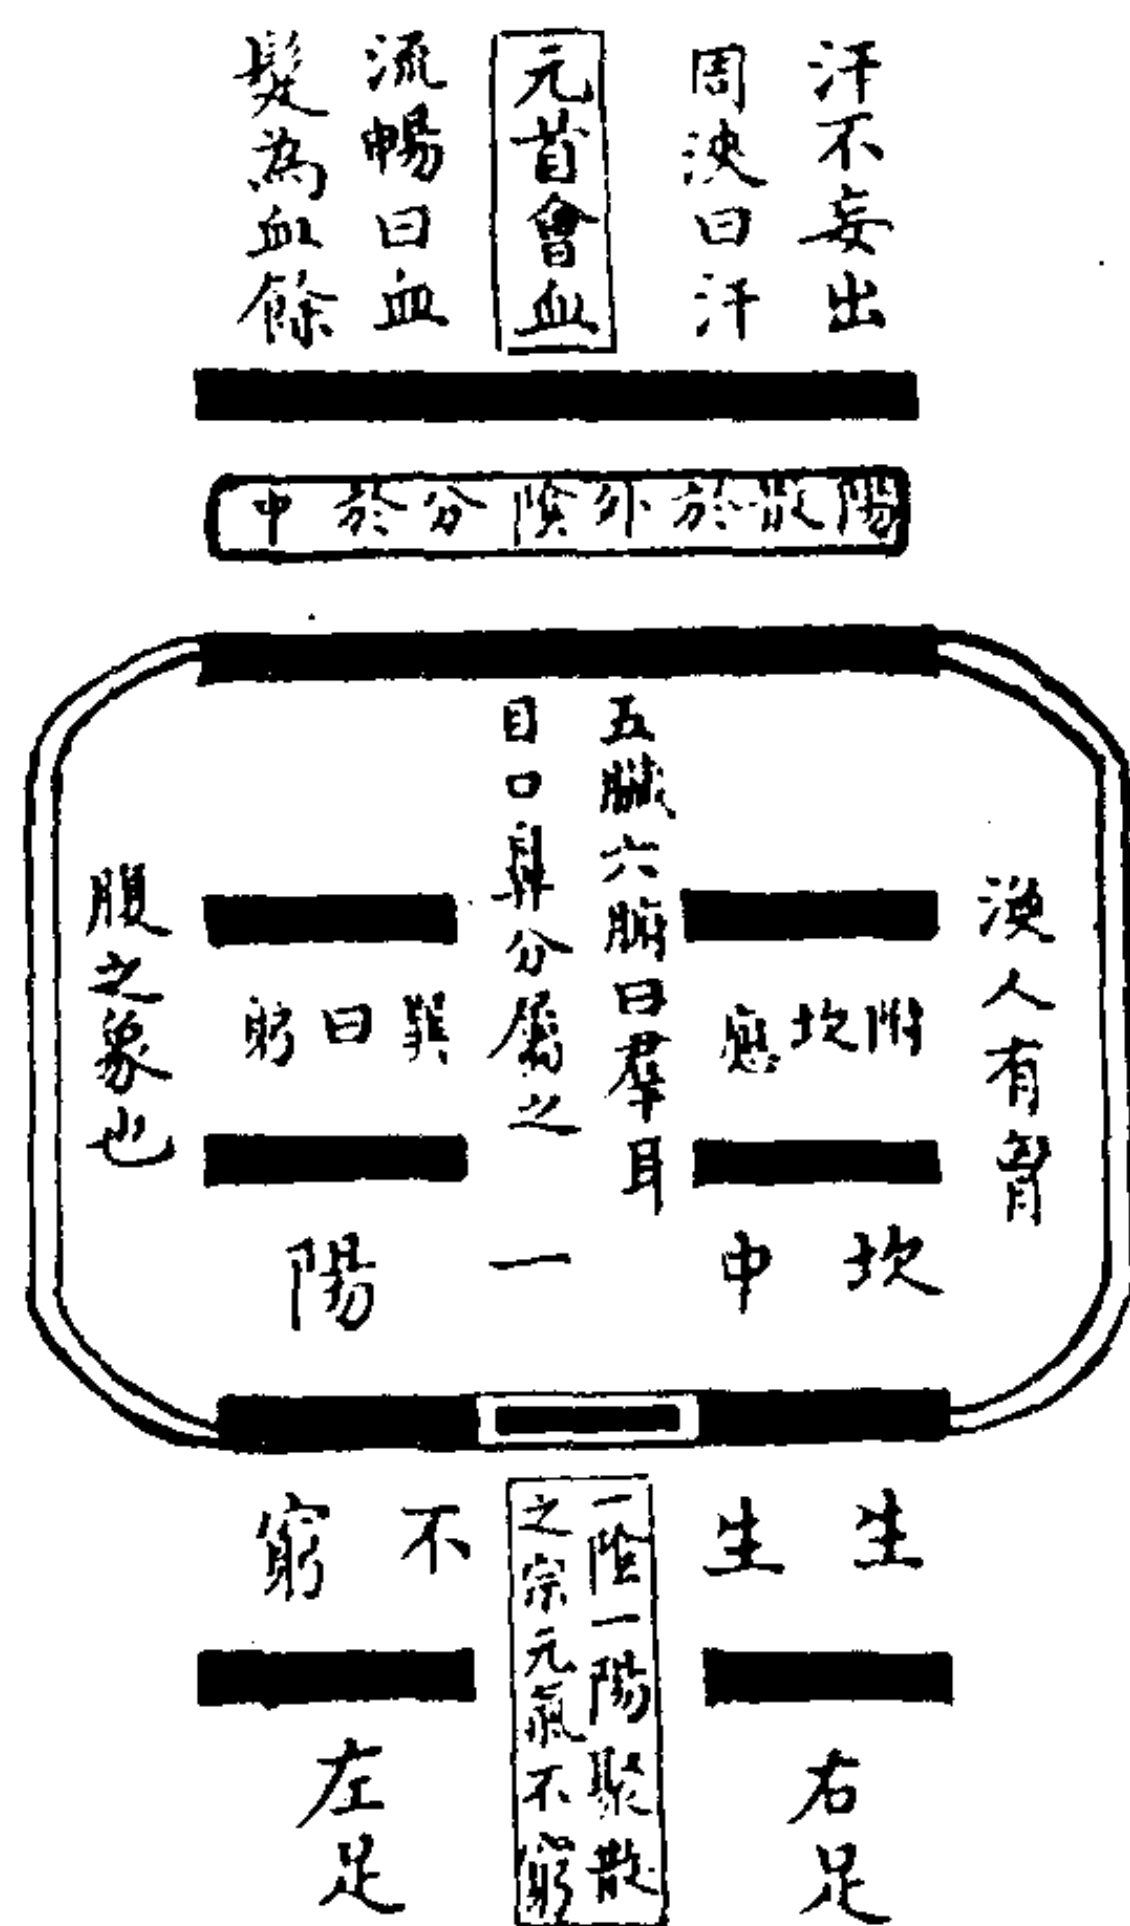 汗不妄出
周浹曰汗
元首會血
流暢曰血
髮為血餘
陽散於外陰分於中
渙人有育
五臟六腑曰羣耳
目口鼻分屬之
腹之象也
附坎應
巽曰躬
坎中一陽
生生不窮
一陰一陽聚散
之宗元氣不窮
右足
左足